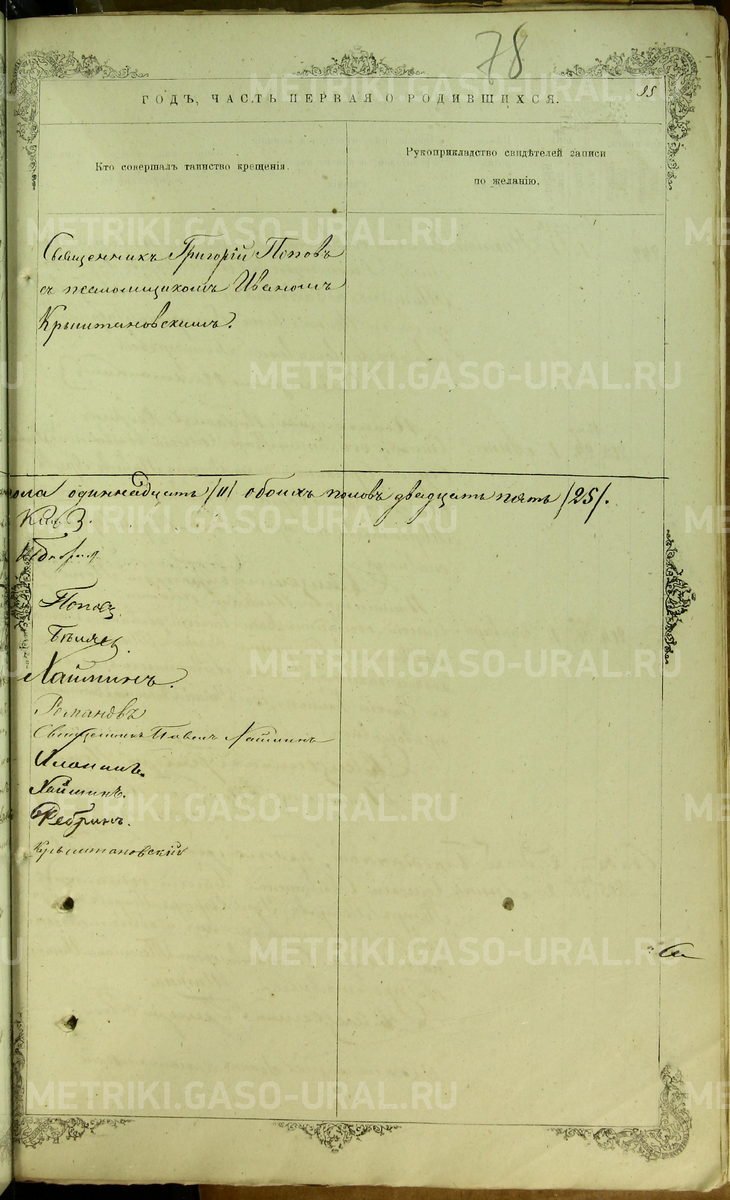 78
ГОДЪ, ЧАСТЬ ПЕРВАЯ О РОДИВШИХСЯ.
Кто совершалъ таинство крещенія.
Рукоприкладство свидѣтелей записи
по желанію.
Священникъ Григорій Поповъ
съ псаломщикомъ Иваномъ
Крыштановскимъ.
пола одиннадцать /11/ обоихъ половъ двадцать пять /25/.
Поповъ
Бѣляевъ
Хайминъ.
Романовъ
Священникъ Павелъ
Хайминъ.
Ребринъ.
Крыштановскій
METRIKI.GASO-URAL.RU